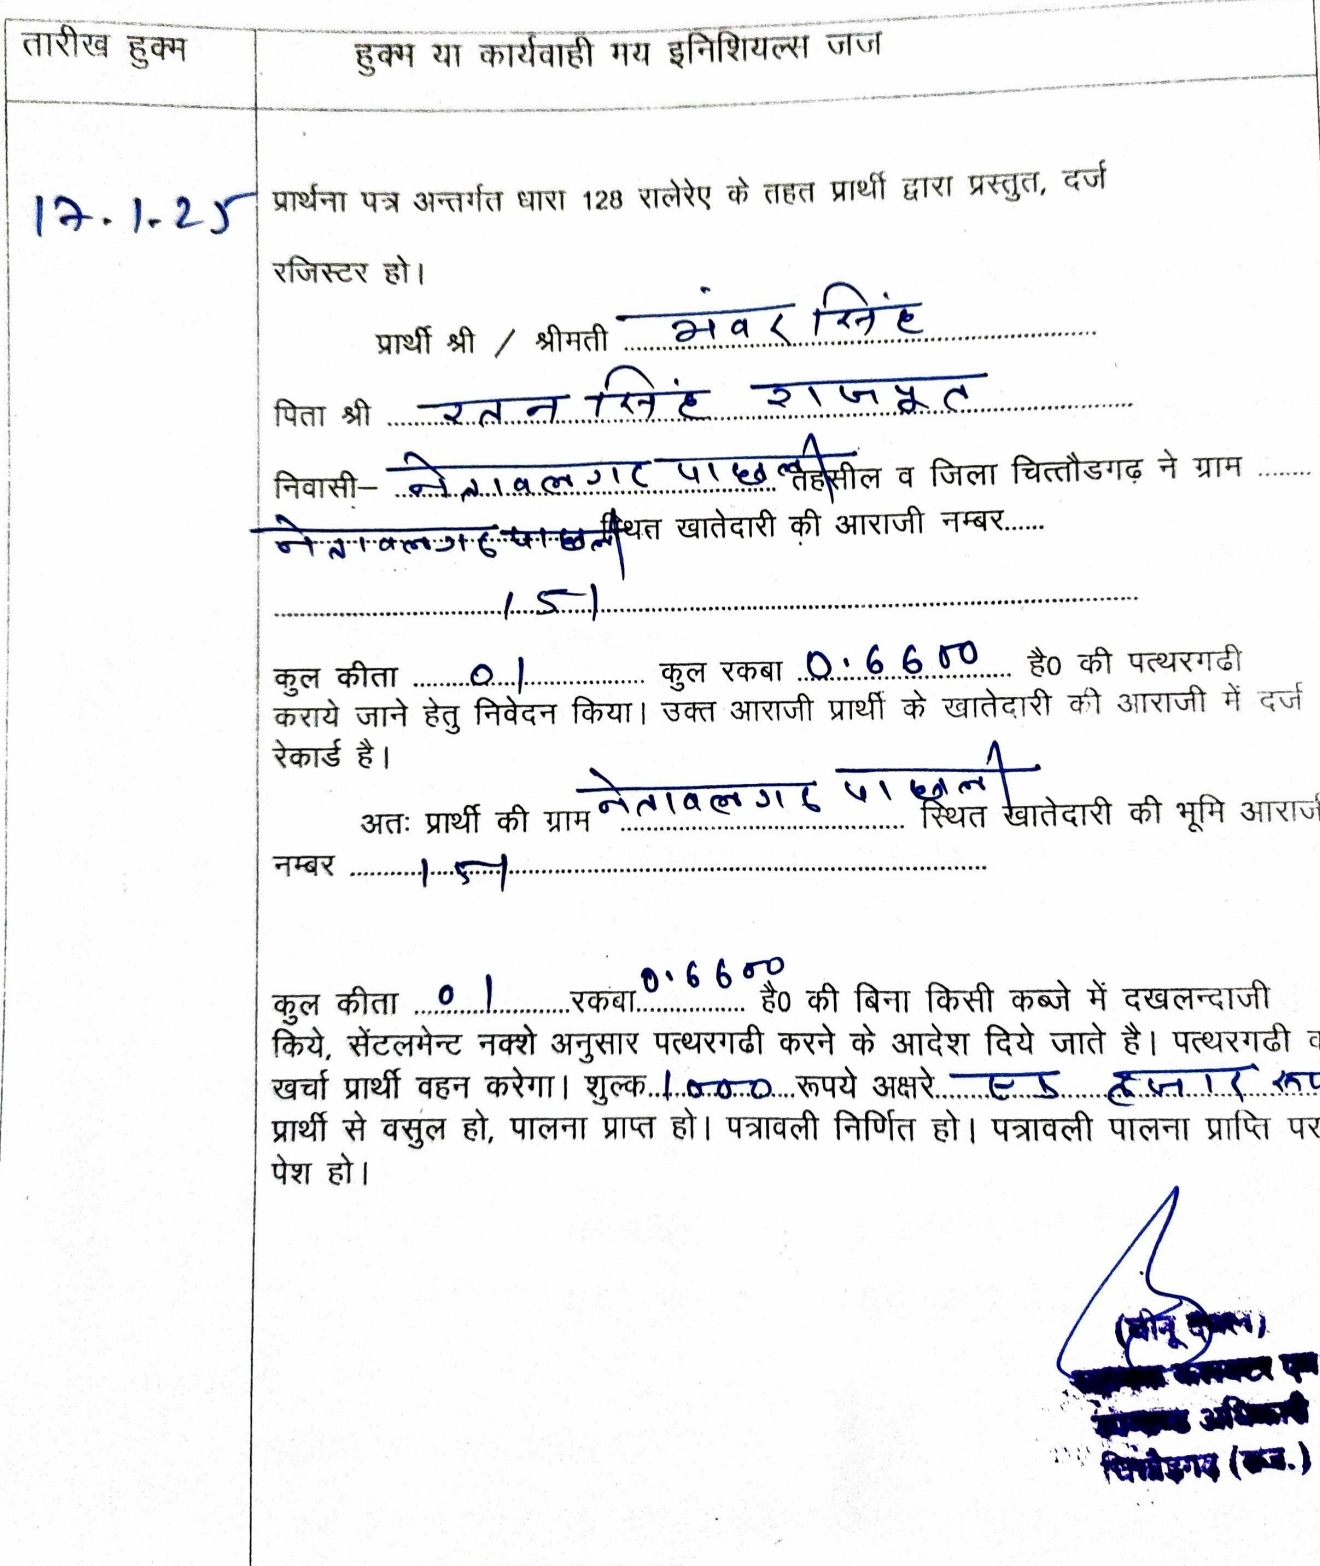 तारीख हुक्म
हुक्म या कार्यवाही मय इनिशियल्स जज
17.1.25
प्रार्थना पत्र अन्तर्गत धारा 128 रालेरेए के तहत प्रार्थी द्वारा प्रस्तुत, दर्ज
रजिस्टर हो।
प्रार्थी श्री / श्रीमती भंवर सिंह
पिता श्री रतन सिंह राजपूत
निवासी– नेतावलगढ पाछली तहसील व जिला चित्तौडगढ़ ने ग्राम ........
नेतावलगढ पाछली स्थित खातेदारी की आराजी नम्बर......
151
कुल कीता 01 कुल रकबा 0.6600 है0 की पत्थरगढी
कराये जाने हेतु निवेदन किया। उक्त आराजी प्रार्थी के खातेदारी की आराजी में दर्ज
रेकार्ड है।
अतः प्रार्थी की ग्राम नेतावलगढ पाछली स्थित खातेदारी की भूमि आराजी
नम्बर 151
कुल कीता 01 रकबा 0.6600 है0 की बिना किसी कब्जे में दखलन्दाजी
किये, सेंटलमेन्ट नक्शे अनुसार पत्थरगढी करने के आदेश दिये जाते है। पत्थरगढी
खर्चा प्रार्थी वहन करेगा। शुल्क 1000 रूपये अक्षरे एक हजार
प्रार्थी से वसुल हो, पालना प्राप्त हो। पत्रावली निर्णित हो। पत्रावली पालना प्राप्ति पर
पेश हो।
कलक्टर एवं
अधिकारी
चित्तौड़गढ़ (राज.)